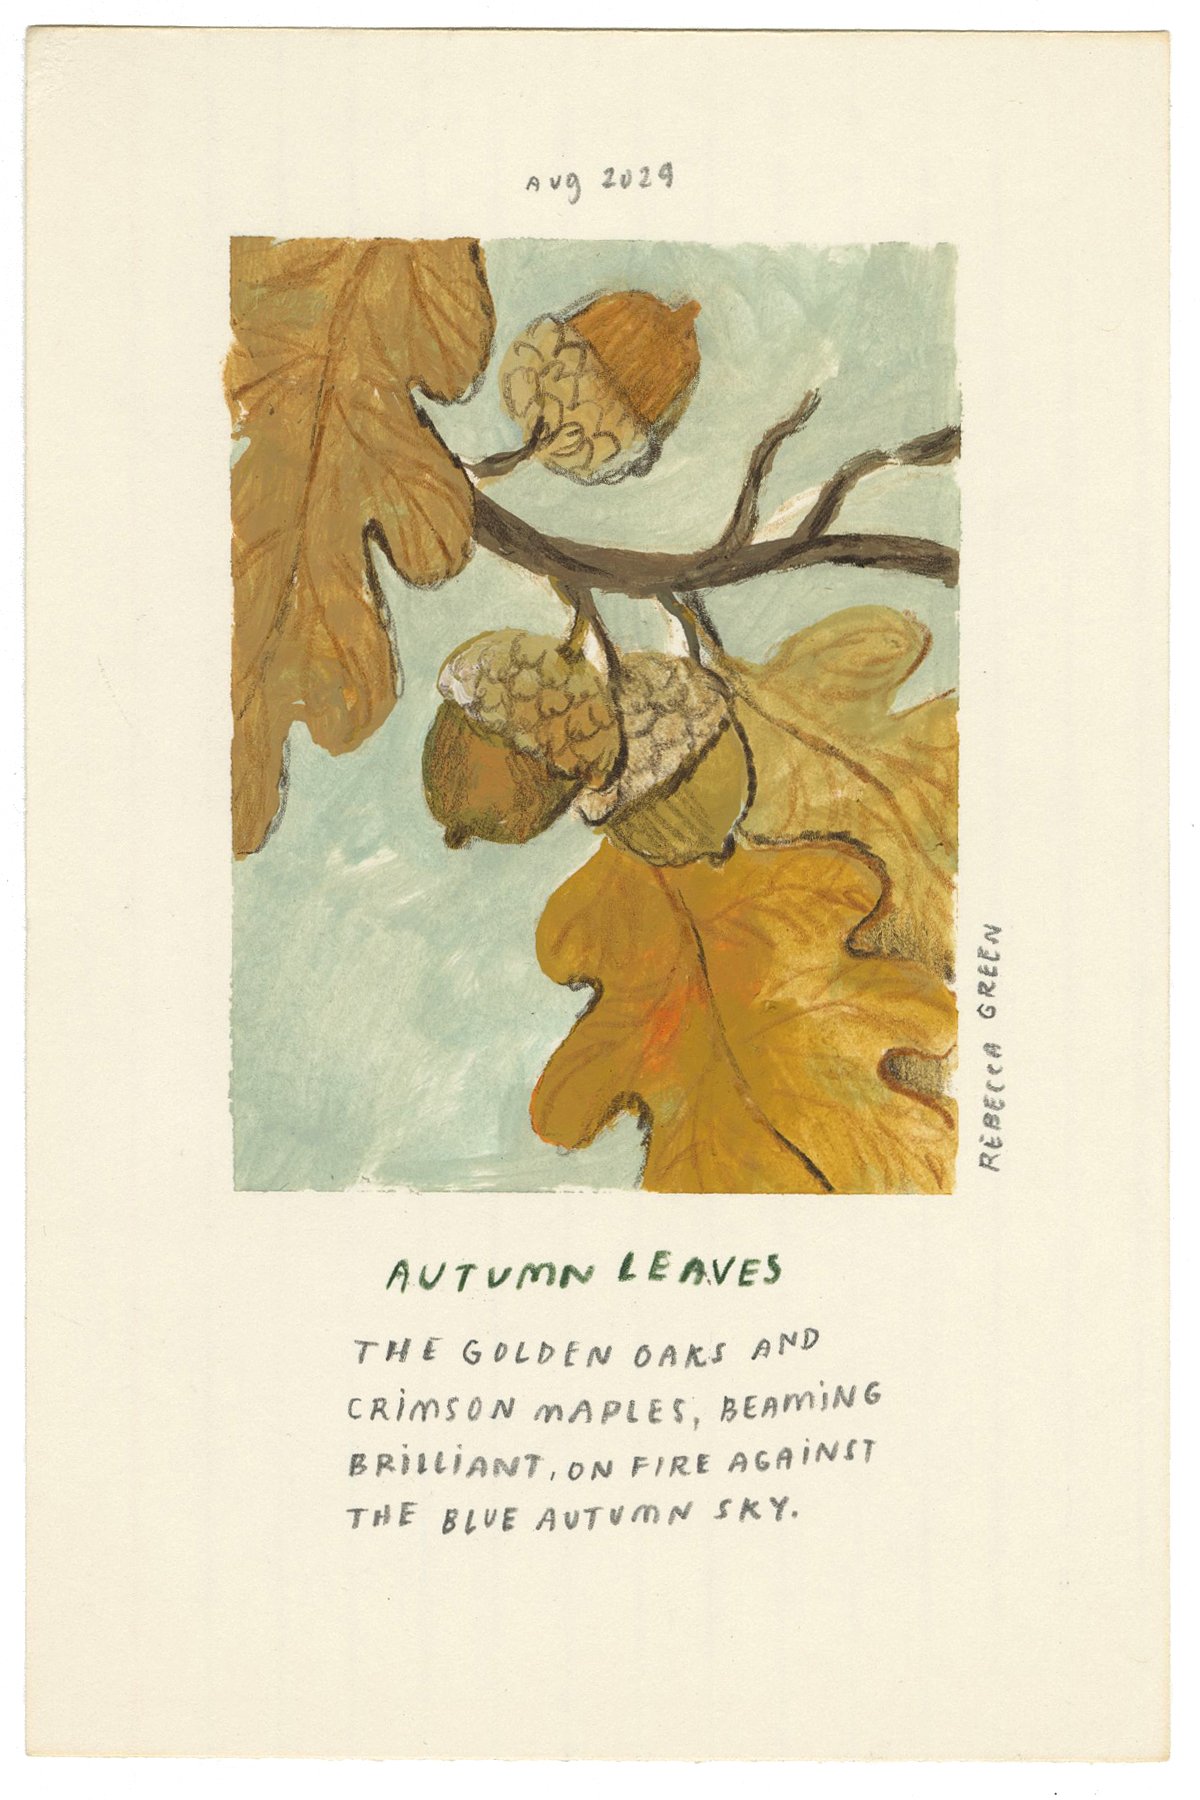 AUG 2029
REBECCA GREEN
AUTUMN LEAVES
THE GOLDEN OAKS AND
CRIMSON MAPLES, BEAMING
BRILLIANT, ON FIRE AGAINST
THE BLUE AUTUMN SKY.